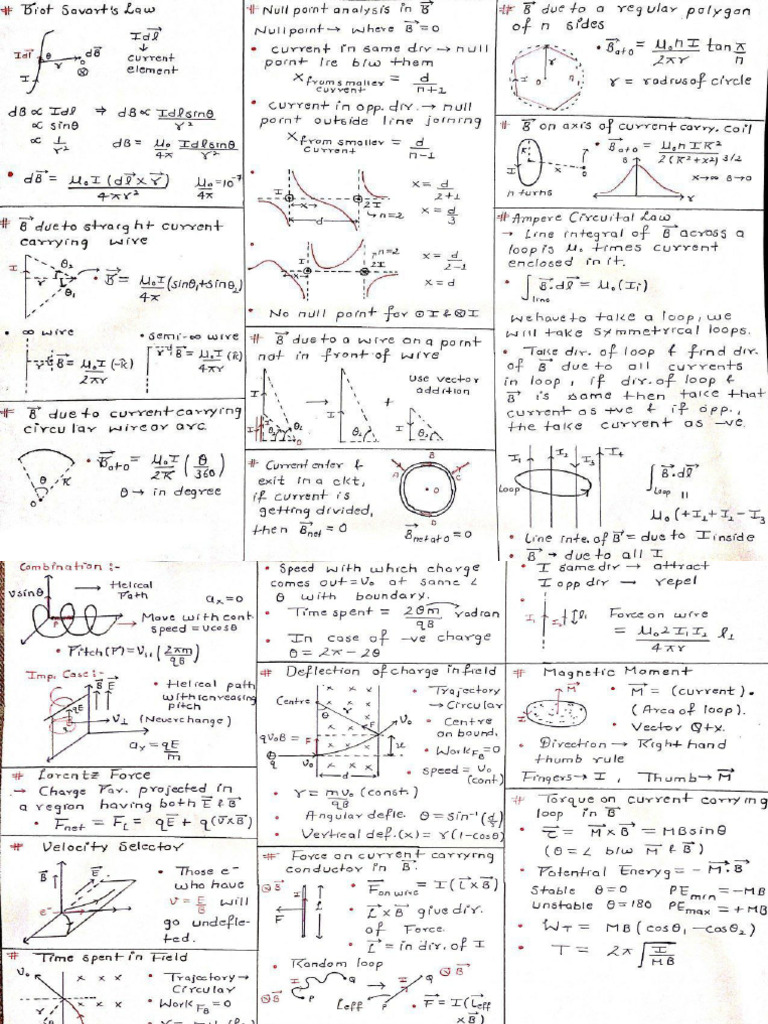 # Biot Savart's Law
Idl⃗
θ
r
I
dB⃗
⊗
Idl⃗
↓
current
element
dB ∝ Idl ⇒ dB ∝ Idlsinθ/r²
∝ sinθ
∝ 1/r²
dB = μ₀/4π Idlsinθ/r²
• dB⃗ = μ₀I(dl⃗×r⃗)/4πr²
μ₀/4π = 10⁻⁷
# B⃗ due to straight current
carrying wire
I
θ₂
r
θ₁
• B⃗ = μ₀I/4π (sinθ₁+sinθ₂)
• ∞ wire
B⃗ = μ₀I/2πr (-k̂)
• semi-∞ wire
B⃗ = μ₀I/4πr (k̂)
# B⃗ due to current carrying
circular wire or arc
θ
R
O
• B⃗at O = μ₀I/2R (θ/360)
θ → in degree
# Null point analysis in B⃗
Null point → where B⃗=0
• current in same dirⁿ → null
point lie b/w them
x from smaller current = d/n+1
• current in opp. dir. → null
point outside line joining
x from smaller current = d/n-1
I
x
d
2I
n=2
x = d/2+1
x = d/3
n=2
I
x
x = d/2-1
x = d
• No null point for ⊙I & ⊗I
# B⃗ due to a wire on a point
not in front of wire
use vector
addition
# Current enter &
exit in a ckt,
if current is
getting divided,
then B⃗net = 0
A
B
C
D
O
B⃗net at O = 0
# B⃗ due to a regular polygon
of n sides
• B⃗at O = μ₀nI/2πr tan π/n
r = radius of circle
# B⃗ on axis of current carry. coil
I
R
x
n turns
• B⃗at O = μ₀nIR²/2(R²+x²)3/2
B
x→∞ B→0
r
# Ampere Circuital Law
→ Line integral of B⃗ across a
loop is μ₀ times current
enclosed in it.
• ∫line B⃗.dl⃗ = μ₀(Iᵢ)
we have to take a loop, we
will take symmetrical loops.
• Take dir. of loop & find dir.
of B⃗ due to all currents
in loop, if dir. of loop &
B⃗ is same then take that
current as +ve & if opp.,
the take current as -ve.
I₁ I₂ I₃ I₄
Loop
∫Loop B⃗.dl⃗
||
μ₀(+I₁+I₂-I₃
• Line inte. of B⃗ = due to I inside
• B⃗ → due to all I
Combination :-
vsinθ
→ Helical
Path
aₓ=0
→ Move with cont.
speed = vcosθ
• Pitch(P) = v₁₁(2πm/qB)
Imp. Case :-
B⃗ E⃗
qE
• Helical path
with increasing
pitch
→ V⊥ (Never change)
aᵧ = qE/m
# Lorentz Force
→ Charge Par. projected in
a region having both E⃗ & B⃗
• Fnet = FL = qE⃗ + q(v⃗×B⃗)
# Velocity Selector
B⃗
E⃗
e⁻
• Those e⁻
who have
v = E/B will
go undefle-
ted.
# Time spent in Field
V₀
r
• Trajectory →
Circular
• Work FB = 0
• Speed with which charge
comes out = V₀ at same ∠
θ with boundary.
• Time spent = 2θm/qB → radian
• In case of -ve charge
θ = 2π - 2θ
# Deflection of charge in field
Centre
θ
r
F
V₀
qV₀B = F
q
V₀
x
d
• Trajectory
→ Circular
• Centre
on bound.
• Work FB = 0
• speed = V₀
(cont)
• r = mv₀/qB (constⁿ)
• Angular defle. θ = sin⁻¹(d/r)
• Vertical def.(x) = r(1-cosθ)
# Force on current carrying
conductor in B⃗.
⊗B⃗
F
I
l
• F⃗on wire = I(L⃗×B⃗)
• L⃗×B⃗ give dir.
of Force.
• L⃗ = in dir. of I
• Random loop
I
Q
P
⊗B⃗
Leff
• F⃗ = I(L⃗eff
×B⃗)
• I same dirⁿ → attract
I opp dirⁿ → repel
•
I₁
I₂
l₁
Force on wire
= μ₀2I₁I₂/4πr l₁
# Magnetic Moment
M⃗
I
• M⃗ = (current).
(Area of loop).
• Vector Qtx.
• Direction → Right hand
thumb rule
Fingers → I, Thumb → M⃗
# Torque on current carrying
loop in B⃗
• τ⃗ = M⃗×B⃗ = MBsinθ
(θ = ∠ b/w M⃗ & B⃗)
• Potential Energy = -M⃗.B⃗
Stable θ=0 PEmin = -MB
unstable θ=180 PEmax = +MB
• WT = MB(cosθ₁-cosθ₂)
• T = 2π√I/MB